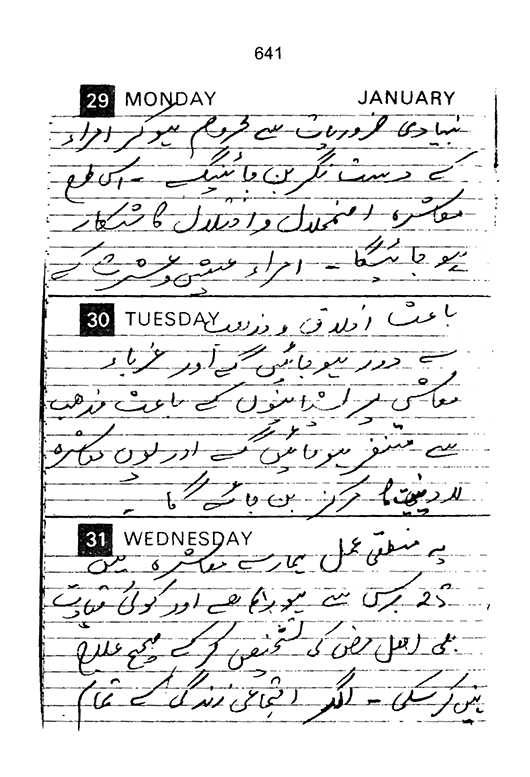 641
29 MONDAY JANUARY
بنیادی ضروریات سے محروم ہو کر امراء
کے دست نگر بن جائینگے - اس طرح
معاشرہ اضمحلال و اختلال کا شکار
ہو جائیگا - امراء عیش و عشرت کے
30 TUESDAY
باعث اخلاق و مذہب
سے دور ہو جائیں گے اور غرباء
معاشی پریشانیوں کے باعث مذہب
سے متنفر ہو جائیں گے اور یوں معاشرہ
لادینیت کا مرکز بن جائے گا -
31 WEDNESDAY
یہ منطقی عمل ہمارے معاشرہ میں
25 برس سے ہو رہا ہے اور کوئی قیادت
بھی اصل مرض کی تشخیص کر کے صحیح علاج
نہیں کر سکی - اگر اجتماعی زندگی کے تمام